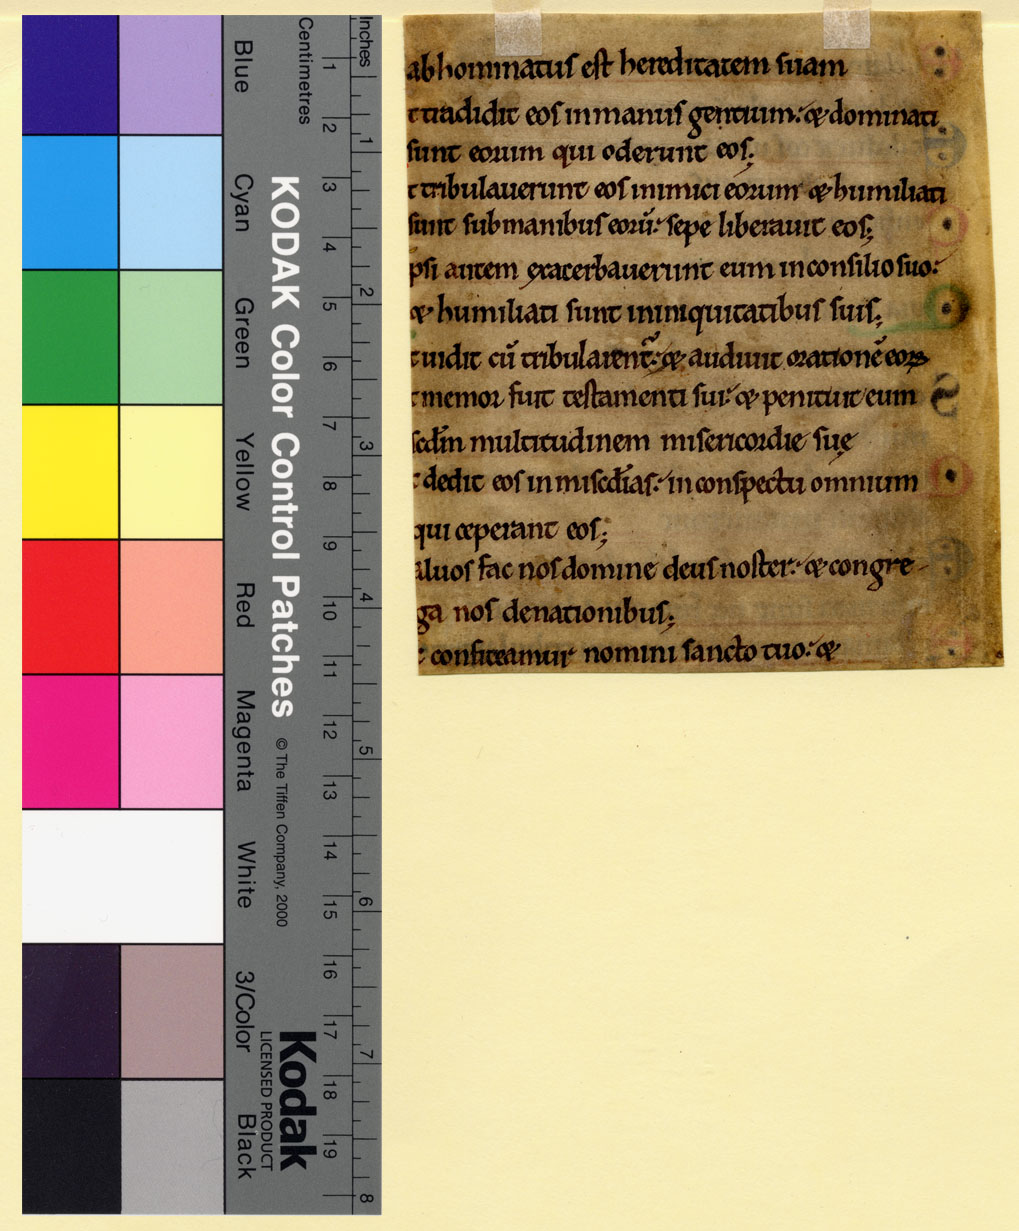 Inches
Centimetres
1 2 3 4 5 6 7 8 9 10 11 12 13 14 15 16 17 18 19
1 2 3 4 5 6 7 8
Blue
Cyan
Green
Yellow
Red
Magenta
White
3/Color
Black
KODAK Color Control Patches
© The Tiffen Company, 2000
Kodak
LICENSED PRODUCT
abhominatus est hereditatem suam
t tradidit eos in manus gentium: & dominati
sunt eorum qui oderunt eos;
t tribulauerunt eos inimici eorum & humiliati
sunt sub manibus eorū: sepe liberauit eos;
psi autem exacerbauerunt eum in consilio suo:
& humiliati sunt in iniquitatibus suis;
t uidit cū tribularent᷑: & audiuit orationē eoꝝ
t memor fuit testamenti sui: & penituit eum
scd̄m multitudinem misericordie suę
t dedit eos in miscd̄ias: in conspectu omnium
qui ceperant eos;
aluos fac nos domine deus noster: & congre-
ga nos de nationibus;
t confiteamur nomini sancto tuo: &